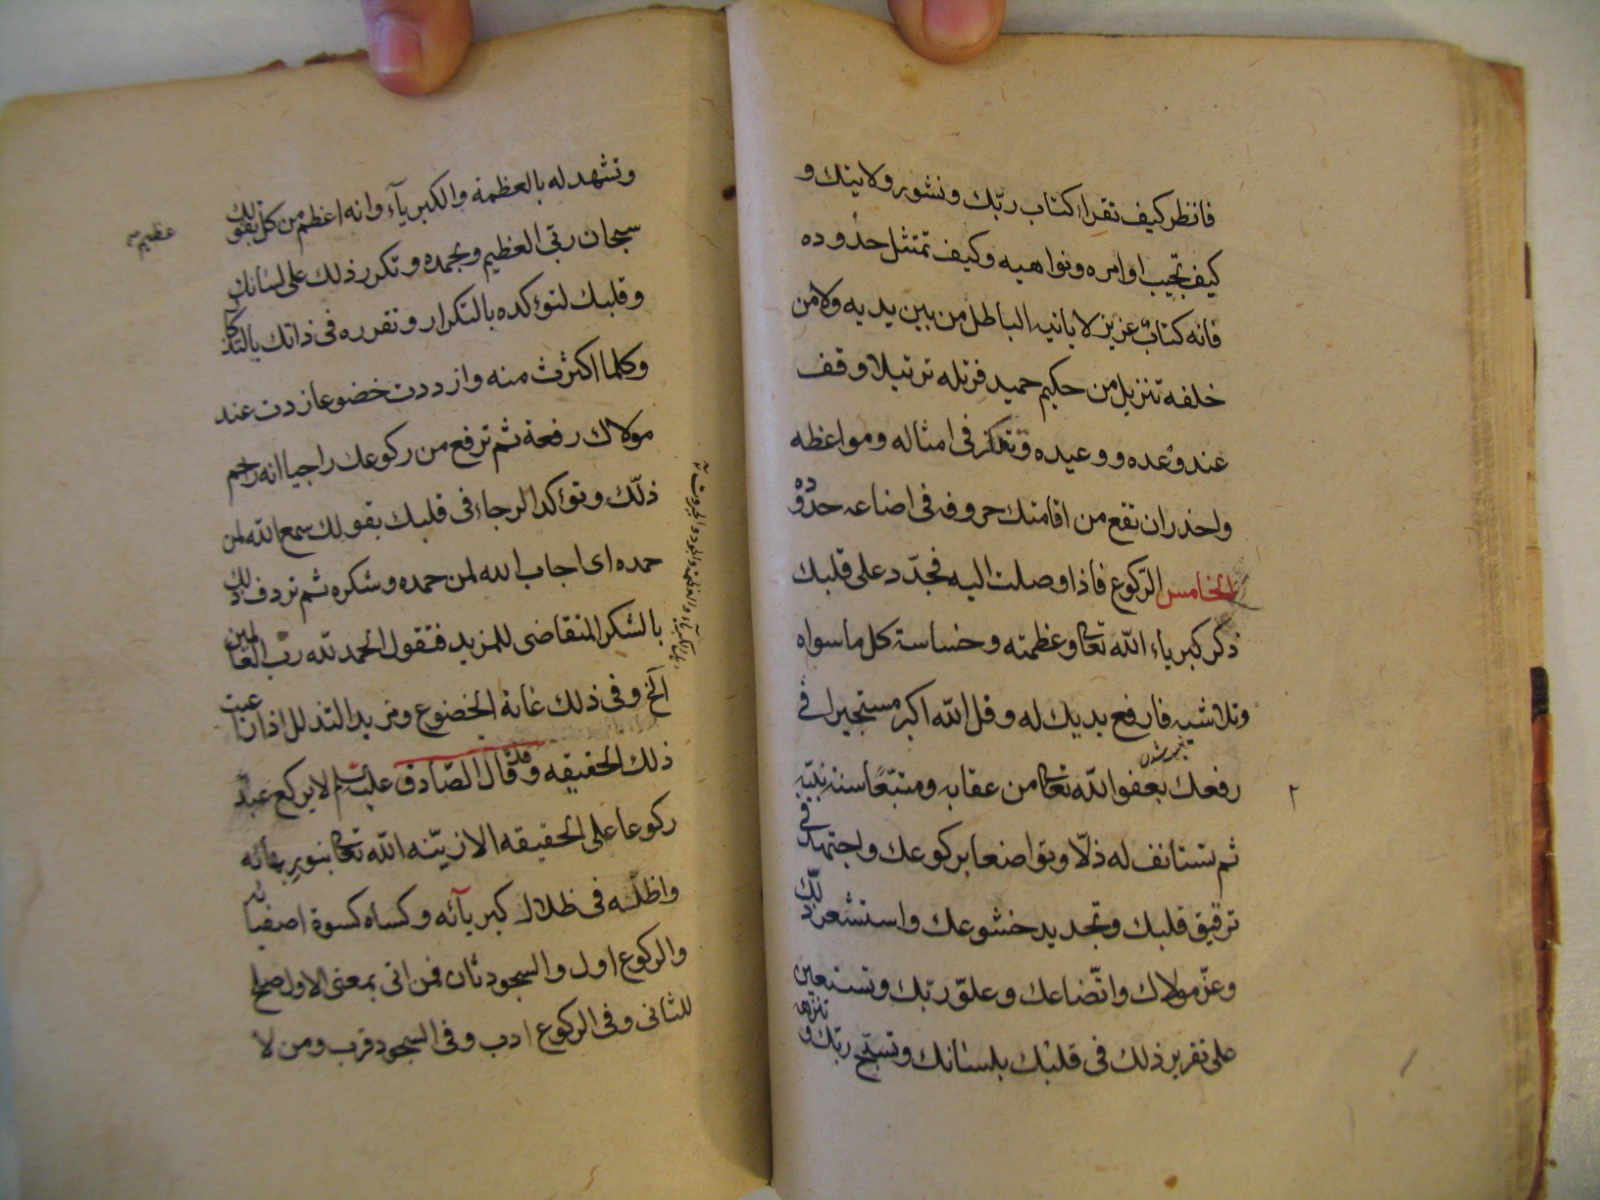 فانظر كيف تقرا كتاب ربّك ونشور ولايتك و
كيف تجيب اوامره ونواهيه وكيف تمتثل حدوده
فانه كتاب عزيز لا ياتيه الباطل من بين يديه ولا من
خلفه تنزيل من حكيم حميد فرتله ترتيلا وقف
عند وعده ووعيده وتفكر فى امثاله ومواعظه
واحذر ان تقع من اقامتك حروفه فى اضاعه حدوده
الخامس الرّكوع فاذا وصلت اليه فجدّد على قلبك
ذكر كبرياء الله تعالى وعظمته وخساسة كل ما سواه
وتلاشيه فارفع يديك له وقل الله اكبر مستجيرا فى
رفعك بعفو الله تعالى من عقابه ومتبعًا سنة نبيّه
ثم تستانف له ذلّا وتواضعا بركوعك واجتهد فى
ترقيق قلبك وتجديد خشوعك واستشعر ذلّك
وعزّ مولاك واتّضاعك وعلوّ ربّك وتستعين
على تقرير ذلك فى قلبك بلسانك وتسبّح ربّك وتنزهه
وتشهد له بالعظمة والكبرياء وانه اعظم من كل بقولك
عظيم
سبحان ربّى العظيم وبحمده وتكرر ذلك على لسانك
وقلبك لتوكده بالتكرار وتقرره فى ذاتك بالتذكار
وكلما اكثرت منه وازددت خضوعا زدت عند
مولاك رفعة ثم ترفع من ركوعك راجيا انه راحم
ذلّك وتؤكد الرجاء فى قلبك بقولك سمع الله لمن
حمده اى اجاب الله لمن حمده وشكره ثم تردف ذلك
بالشكر المتقاضى للمزيد فتقول الحمد لله رب العالمين
اهل الكبرياء والعظمة والجود والجبروت
الخ وفى ذلك غاية الخضوع ومزيد التذلل اذا راعيت
ذلك الحقيقه وقد قال الصّادق عليه السلم لا يركع عبد
ركوعا على الحقيقه الا زيّنه الله تعالى بنور بهائه
واظلّه فى ظلال كبريآئه وكساه كسوة اصفيائه
والركوع اول والسجود ثان فمن اتى بمعنى الاول صلح
للثانى وفى الركوع ادب وفى السجود قرب ومن لا